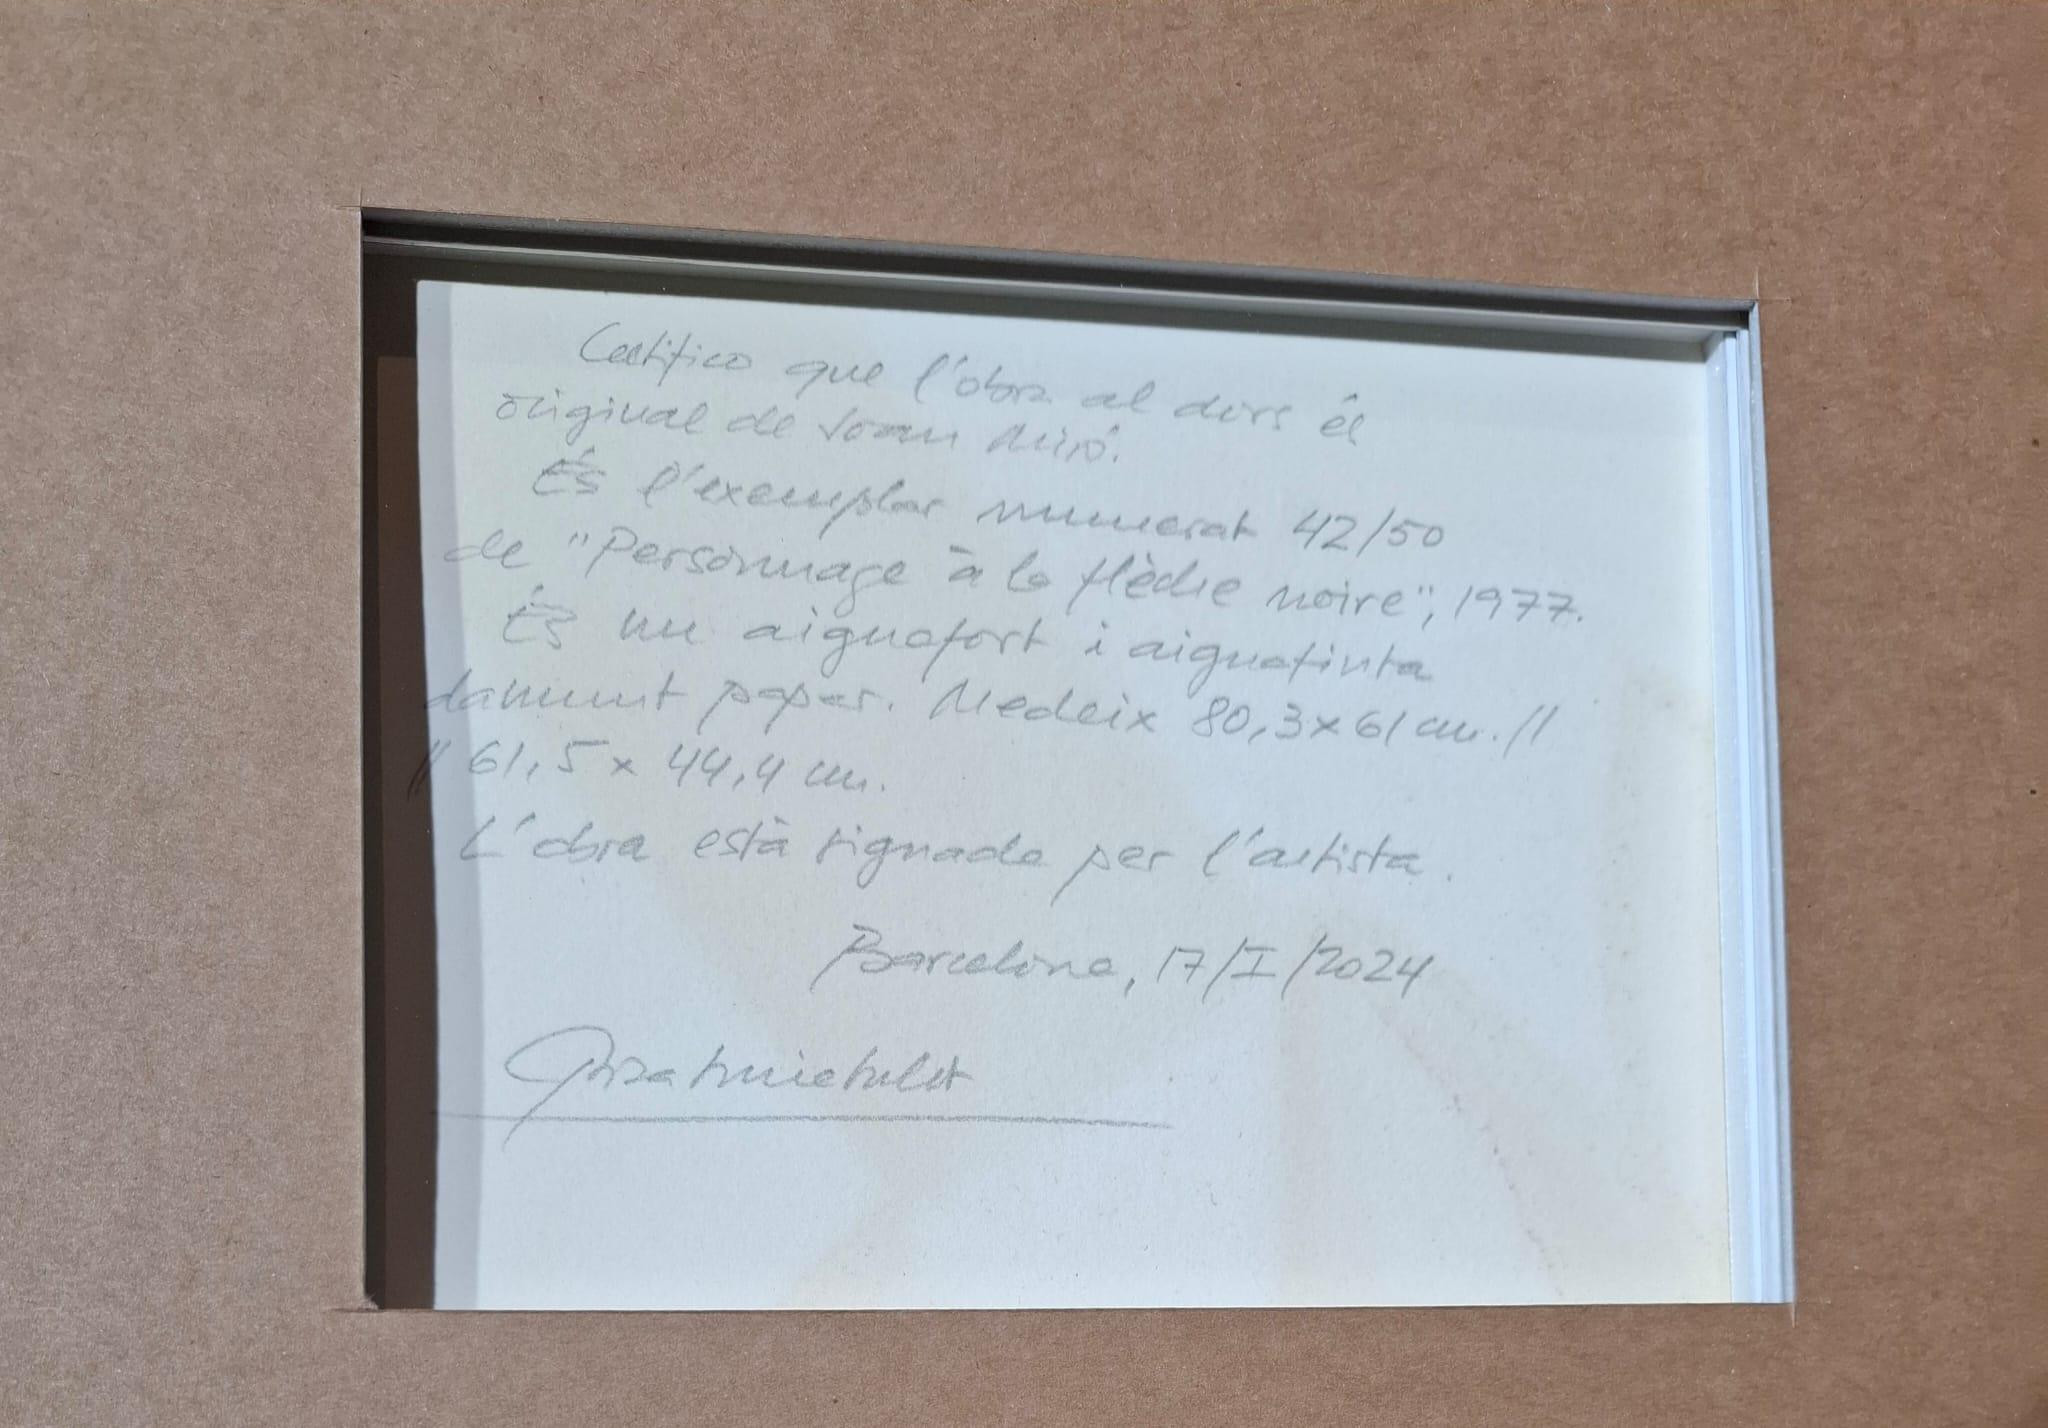 Certifico que l'obra al dors és
original de Joan Miró.
És l'exemplar numerat 42/50
de "Personnage à la flèche noire", 1977.
És un aiguafort i aiguatinta
damunt paper. Medeix 80,3 x 61 cm. //
// 61,5 x 44,4 cm.
L'obra està signada per l'artista.
Barcelona, 17/I/2024